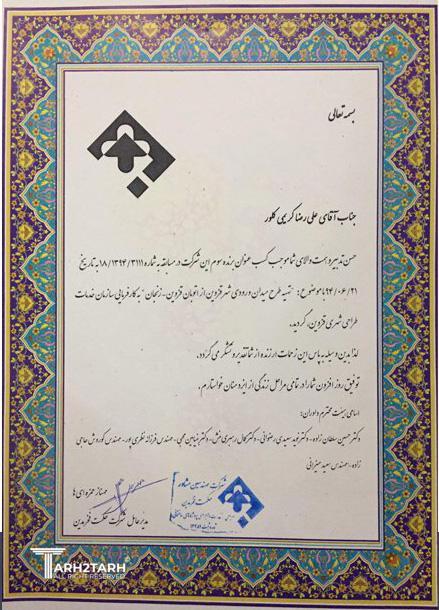 بسمه تعالی
جناب آقای علی رضا کریمی کلور
حسن تدبیر و همت والای شما موجب کسب عنوان برنده سوم این شرکت در مسابقه به شماره ۱۸/۱۳۹۴/۳۱۱۱ به تاریخ
۹۴/۰۶/۲۱ با موضوع: "تهیه طرح میدان ورودی شهر قزوین از اتوبان قزوین-زنجان" به کارفرمایی سازمان خدمات
طراحی شهری قزوین، گردید.
لذا بدین وسیله به پاس این زحمات ارزنده از شما تقدیر و تشکر می گردد.
توفیق روز افزون شما را در تمامی مراحل زندگی از ایزد منان خواستارم.
اسامی هیئت محترم داوران:
دکتر حسین سلطان زاده-دکتر مجید سعیدی رضوانی-دکتر کمال رهبری منش-دکتر بنیامین محبی-مهندس فرزانه نظری پور-مهندس کوروش حاجی
زاده-مهندس سعید
شرکت مهندسین مشاور
حکمت قزبدین
مهناز حمزه ای ها
مدیرعامل شرکت حکمت قزبدین
TARH2TARH
ALL RIGHT RESERVED